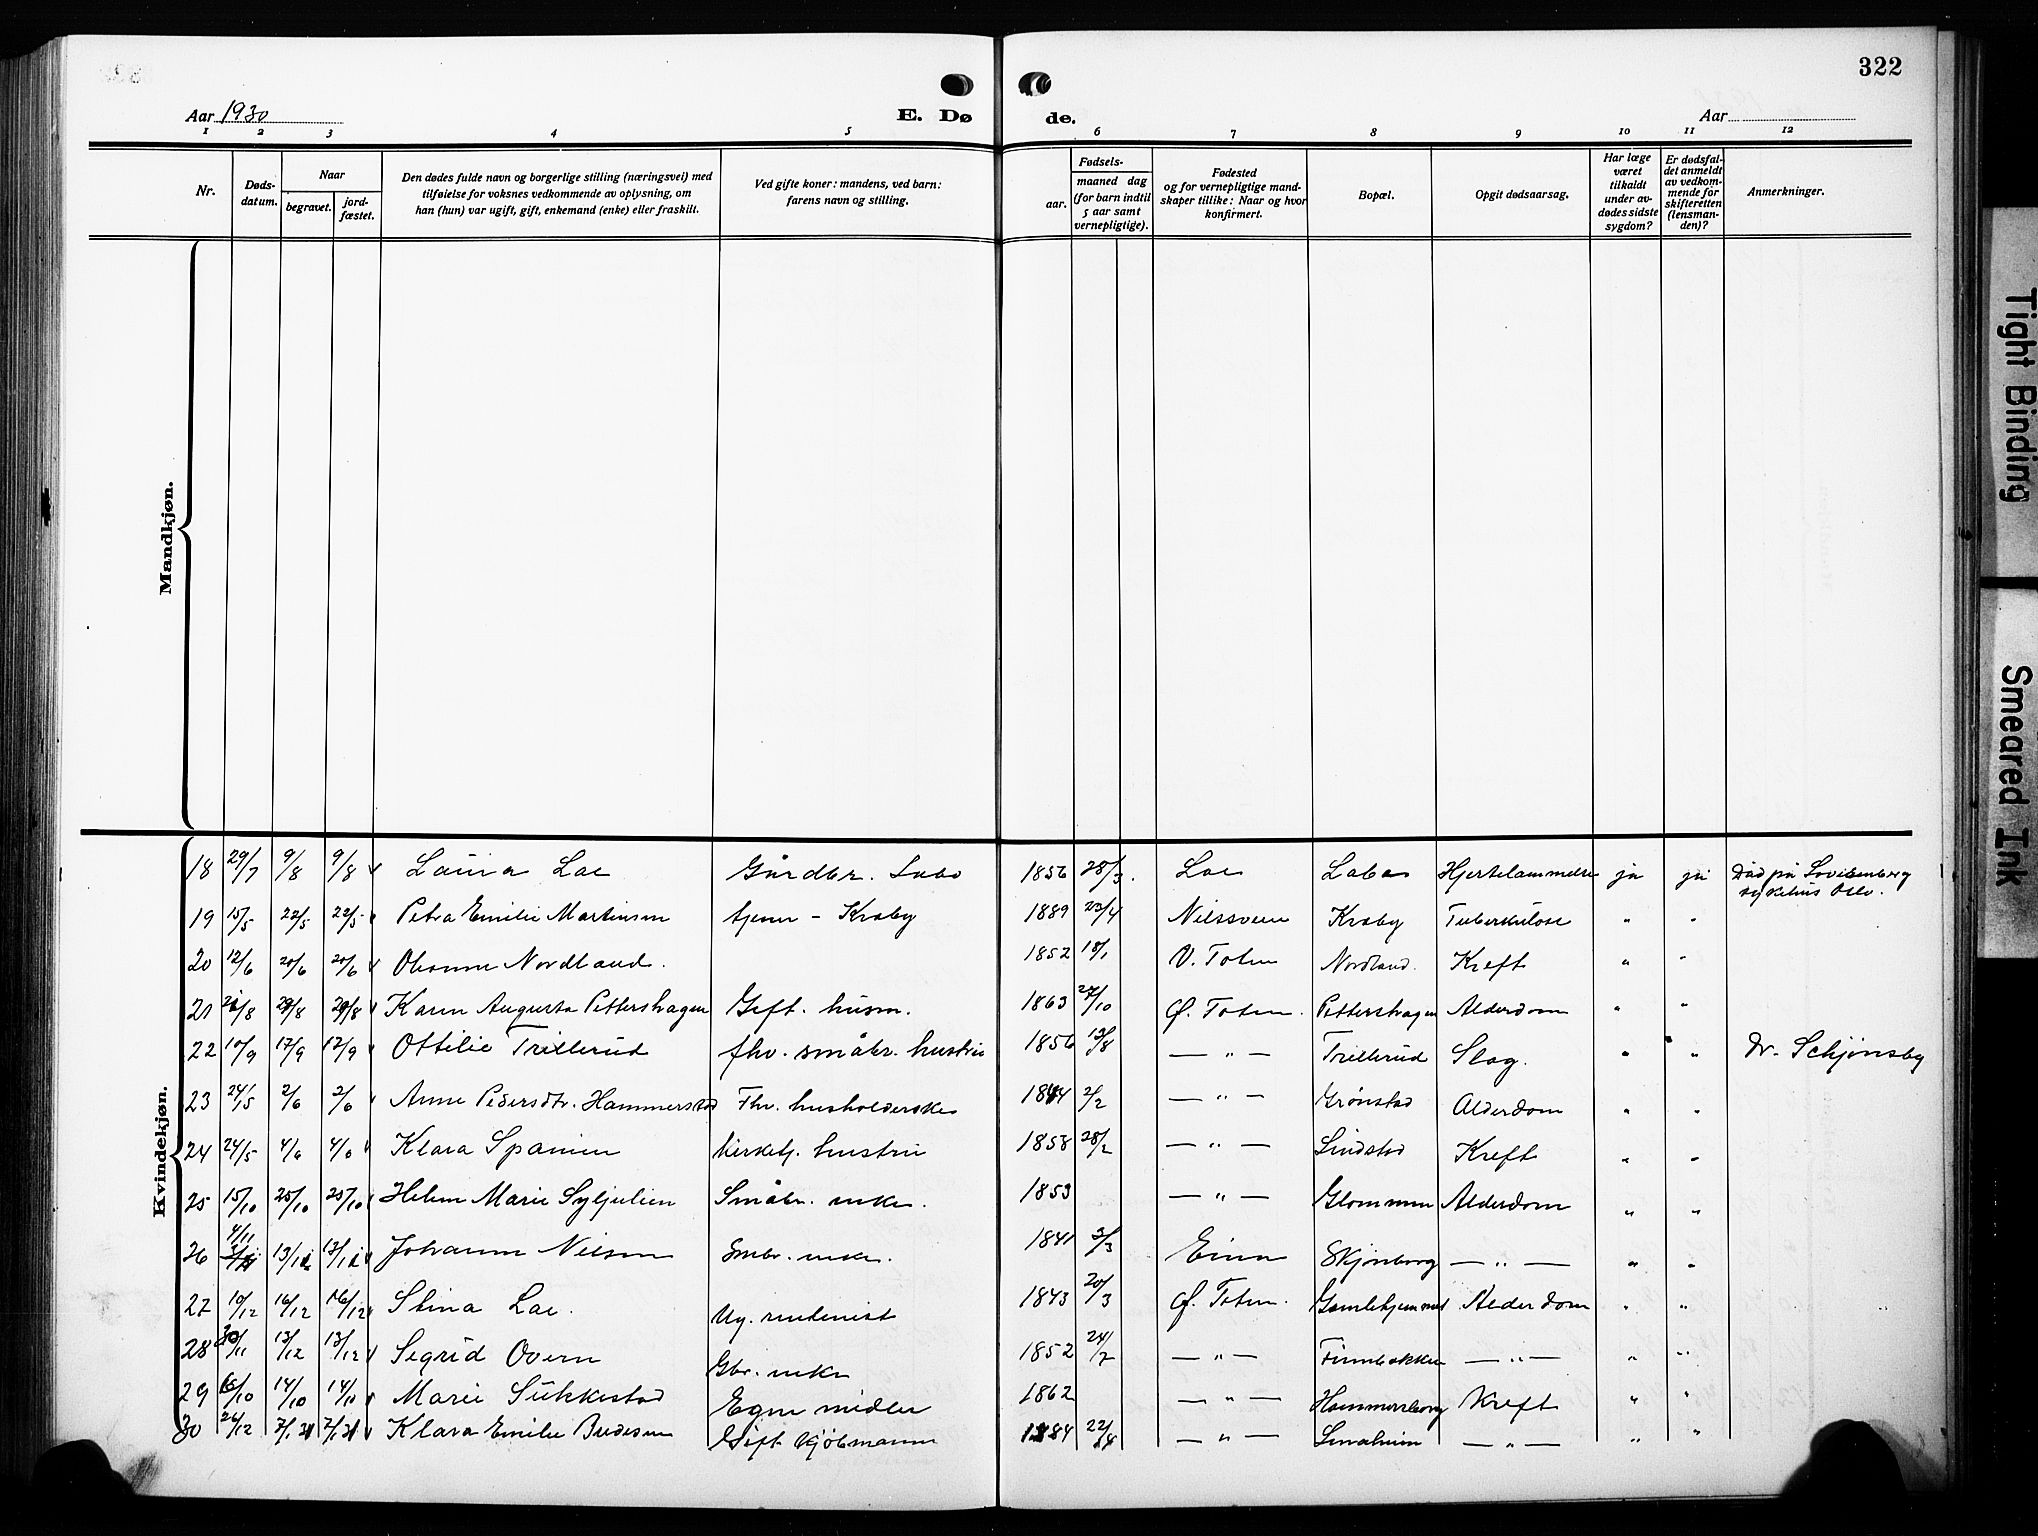 322
Aar 1930
E. Dø de.
Aar
1 2 3 4 5 6 7 8 9 10 11 12
Nr.
Døds-
datum.
Naar
begravet.
jord-
fæstet.
Den dødes fulde navn og borgerlige stilling (næringsvei) med
tilføielse for voksnes vedkommende av oplysning, om
han (hun) var ugift, gift, enkemand (enke) eller fraskilt.
Ved gifte koner: mandens, ved barn:
farens navn og stilling.
Fødsels-
aar.
maaned dag
(for barn indtil
5 aar samt
vernepligtige).
Fødested
og for vernepligtige mand-
skaper tillike: Naar og hvor
konfirmert.
Bopæl.
Opgit dødsaarsag.
Har læge
været
tilkaldt
under av-
dødes sidste
sygdom?
Er dødsfal-
det anmeldt
av vedkom-
mende for
skifteretten
(lensman-
den)?
Anmerkninger.
Mandkjøn.
Kvindekjøn.
18 29/7 9/8 9/8 Laura Loe Gårdbr. 1856 28/3 Loe Hjertelammelse ja ja Død på Lovisenberg
sykehus Oslo.
19 15/5 22/5 22/5 Petra Emilie Martinsen tjener - Kraby 1889 23/4 Kraby Tuberkulose " "
20 12/6 20/6 20/6 Nordland. 1852 18/1 V. Toten Nordland. Kreft " "
21 29/8 29/8 Karen Augusta Pettershagen Gift. husm. 1863 27/10 Ø. Toten. Pettershagen Alderdom " "
22 10/9 17/9 17/9 Ottilie Trillerud fhv. småbr. hustru 1856 13/8 — " — Trillerud Slag. " " dr. Schjønsby
23 24/5 2/6 2/6 Anne Pedersdtr. Hammerstad Fhv. husholderske 1844 2/2 — " — Grønstad Alderdom " "
24 24/5 4/6 4/6 Klara Spanien Kirketj. hustru 1858 28/2 — " — Lindstad Kreft " "
25 15/10 25/10 25/10 Helene Marie Syljulien Småbr. enke. 1853 — " — Glommen Alderdom " "
26 4/11 Johanne Nilsen Smbr. enke. 1841 3/3 Eina — " — " "
27 10/12 16/12 16/12 Stina Loe. Ug. rentenist 1843 20/3 Ø. Toten. Gamlehjemmet Alderdom " "
28 30/11 13/12 13/12 Sigrid Overn Gbr. enke 1852 24/7 — " — Finnbakken — " — " "
29 14/10 14/10 Marie Sukkestad Egne midler 1862 — " — Kreft " "
30 26/12 Klara Emilie Gift kjøbmann 1884 22/4 — " — Linaheim — " — " "
Tight Binding
Smeared Ink